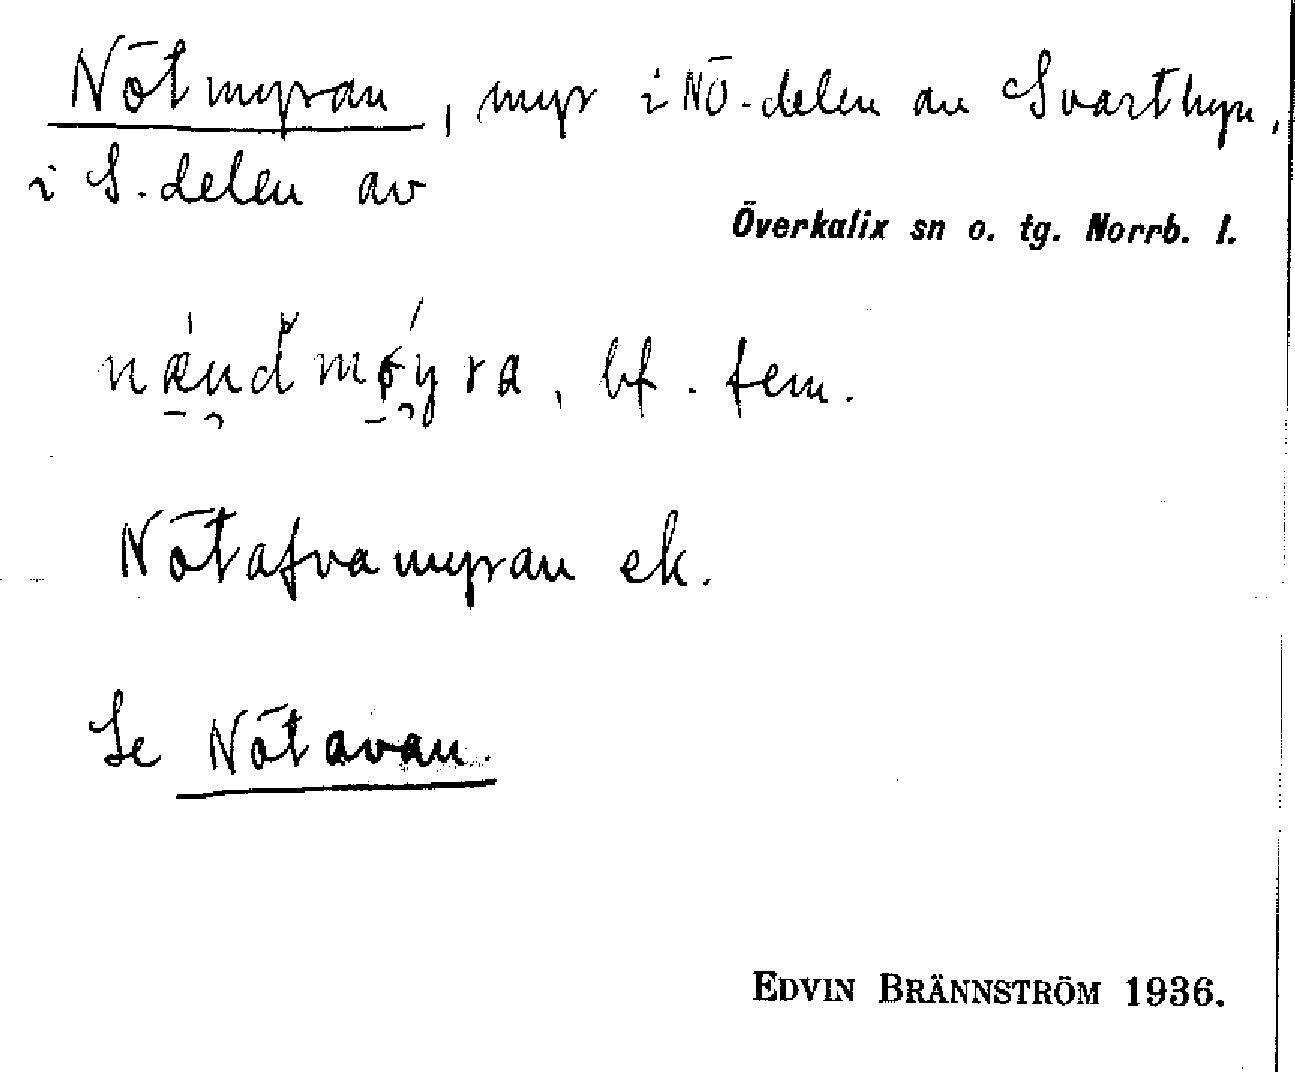 Nötmyran, myr i NÖ-delen av Svartbyn,
i S.delen av
Överkalix sn o. tg. Norrb. l.
bf. fem.
Nötafvamyran ek.
Se Nötavan.
EDVIN BRÄNNSTRÖM 1936.